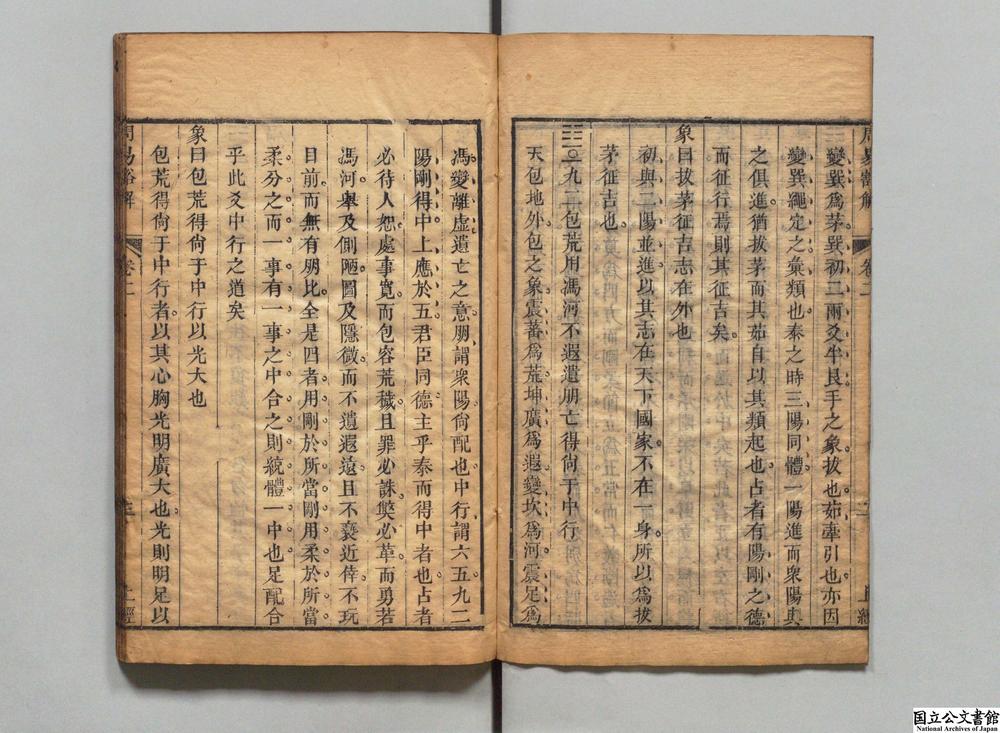 周易說解 卷二 上經
變巽為茅巽初二兩爻半艮手之象拔也茹牽引也亦因
變巽繩定之彙類也泰之時三陽同體一陽進而衆陽與
之俱進猶拔茅而其茹自以其類起也占者有陽剛之德
而征行焉則其征吉矣
象曰拔茅征吉志在外也
初與二陽並進以其志在天下國家不在一身所以為拔
茅征吉也
九二包荒用馮河不遐遺朋亡得尙于中行
天包地外包之象震蕃為荒坤廣為遐變坎為河震足為
馮變離虛遺亡之意朋謂衆陽尙配也中行謂六五九二
陽剛得中上應於五君臣同德主乎泰而得中者也占者
必待人恕處事寬而包容荒穢且罪必誅獘必革而勇若
馮河舉及側陋圖及隱微而不遺遐遠且不褻近倖不玩
目前而無有朋比全是四者用剛於所當剛用柔於所當
柔分之而一事有一事之中合之則統體一中也足配合
乎此爻中行之道矣
象曰包荒得尙于中行以光大也
包荒得尙于中行者以其心胸光明廣大也光則明足以
周易說解 卷二 三 上經
国立公文書館
National Archives of Japan